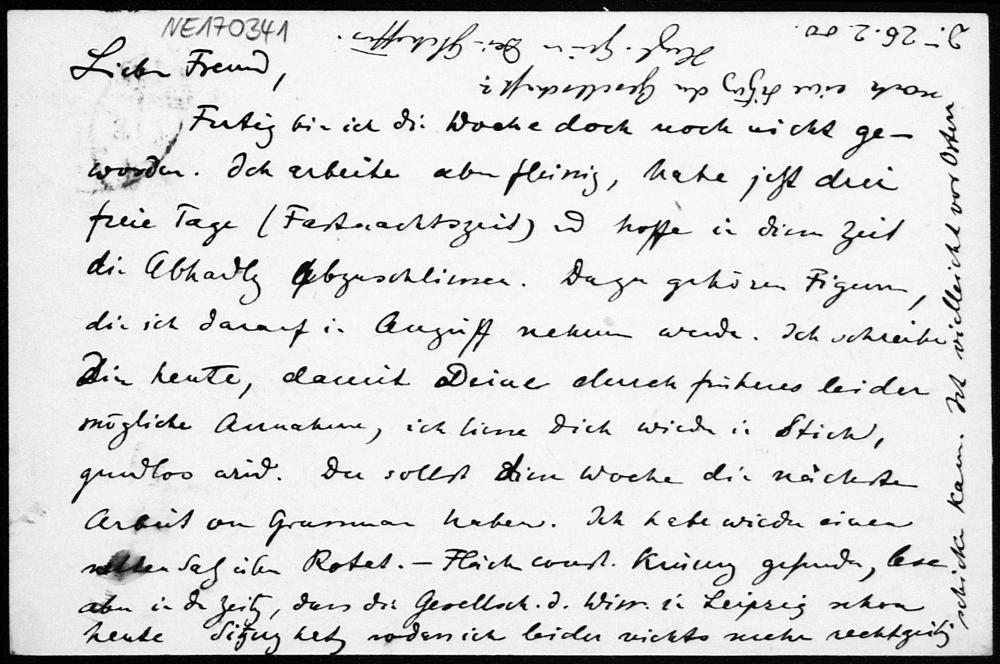 NE170341
D. 26.2.00
Lieber Freund,
Fertig bin ich die Woche doch noch nicht ge-
worden. Ich arbeite aber fleissig, habe jetzt drei
freie Tage (Fastnachtszeit) und hoffe in dieser Zeit
die Abhadlg abzuschliessen. Dazu gehören Figuren,
die ich darauf in Angriff nehmen werde. Ich schreibe
Dir heute, damit Deine durch früheres leider
mögliche Annahme, ich liesse Dich wieder in Stich,
grundlos wird. Du sollst diese Woche die nächste
Arbeit von Grassmann haben. Ich habe wieder einen
netten Satz über Rotat.-Fläch const. Krümg gefunden, lese
aber in der Zeitg, dass die Gesellsch. d. Wiss. in Leipzig schon
heute Sitzung hat, sodass ich leider nichts mehr rechtzeitig
schicken kann. Ist vielleicht vor Ostern
noch eine Sitzg der Gesellschaft?
Herzl. Grüsse Dein